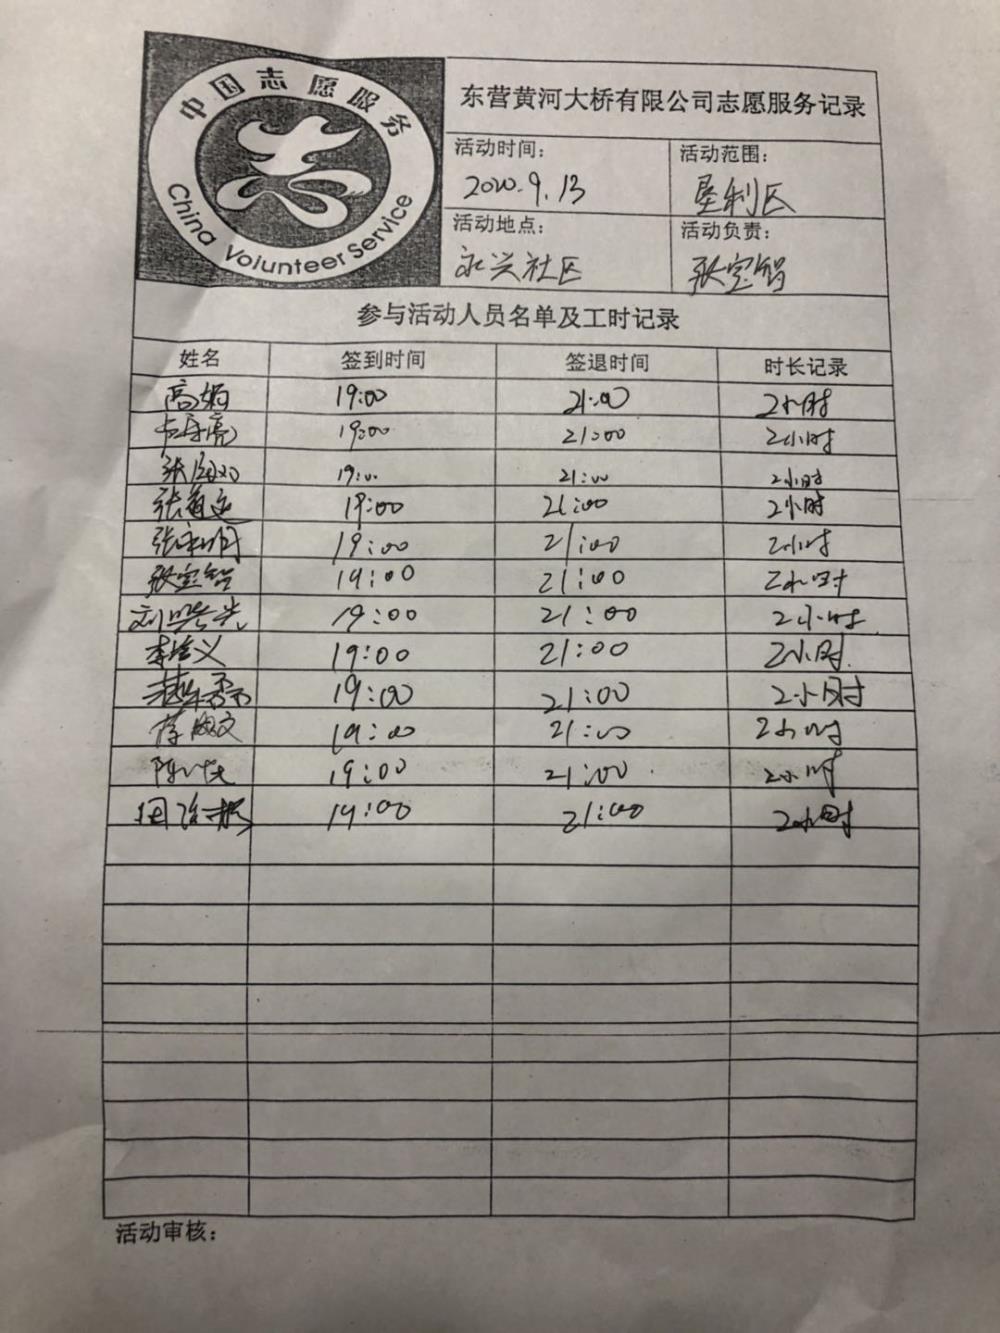 中国志愿服务
China Volunteer Service
东营黄河大桥有限公司志愿服务记录
活动时间：
2020.9.13
活动范围：
垦利区
活动地点：
永兴社区
活动负责：
张宝智
参与活动人员名单及工时记录
姓名 签到时间 签退时间 时长记录
高娟 19:00 21:00 2小时
19:00 21:00 2小时
19:00 21:00 2小时
19:00 21:00 2小时
19:00 21:00 2小时
张宝智 19:00 21:00 2小时
19:00 21:00 2小时
19:00 21:00 2小时
19:00 21:00 2小时
19:00 21:00 2小时
19:00 21:00 2小时
19:00 21:00 2小时
活动审核：